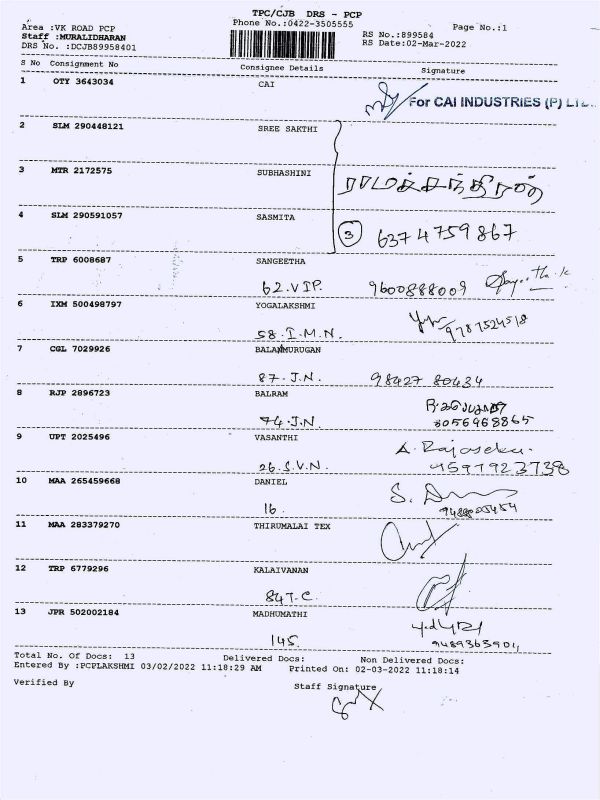 TPC/CJB DRS - PCP
Area :VK ROAD PCP
Phone No.:0422-3505555
Page No.:1
Staff :MURALIDHARAN
RS No.:899584
DRS No. :DCJB89958401
RS Date:02-Mar-2022
S No Consignment No Consignee Details Signature
1 OTY 3643034 CAI
For CAI INDUSTRIES (P) LTD.
2 SLM 290448121 SREE SAKTHI
3 MTR 2172575 SUBHASHINI
ராமச்சந்திரன்
4 SLM 290591057 SASMITA
3 6374759867
5 TRP 6008687 SANGEETHA
62.VIP. 9600888009
6 IXM 500498797 YOGALAKSHMI
58.I.M.N. 9787524518
7 CGL 7029926 BALAMURUGAN
87.J.N. 98427 80434
8 RJP 2896723 BALRAM
74.J.N 8056968865
9 UPT 2025496 VASANTHI
A. Rajaseka
26.S.V.N.
10 MAA 265459668 DANIEL
16.
11 MAA 283379270 THIRUMALAI TEX
12 TRP 6779296 KALAIVANAN
847.C.
13 JPR 502002184 MADHUMATHI
145.
Total No. Of Docs: 13 Delivered Docs: Non Delivered Docs:
Entered By :PCPLAKSHMI 03/02/2022 11:18:29 AM Printed On: 02-03-2022 11:18:14
Verified By Staff Signature